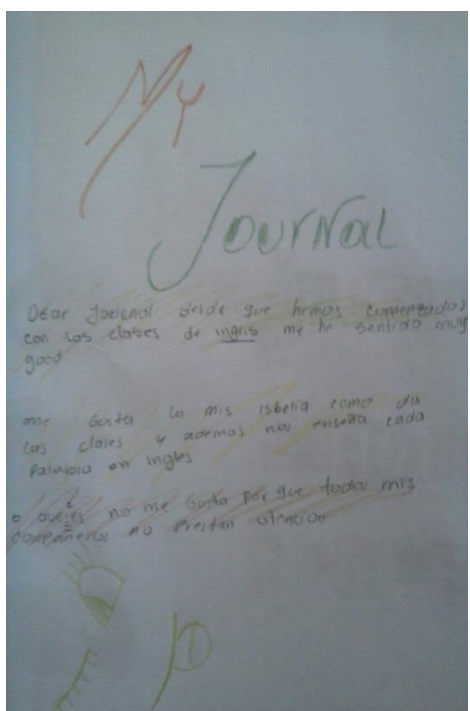 My
Journal
Dear Journal desde que hemos comenzados
con las clases de ingles me he sentido muy
good
me Gusta la mis isbelia como da
las clases y ademas nos enseña cada
Palabra en ingles
o no me Gusta Por que todos mis
compañeros no Prestan atencion